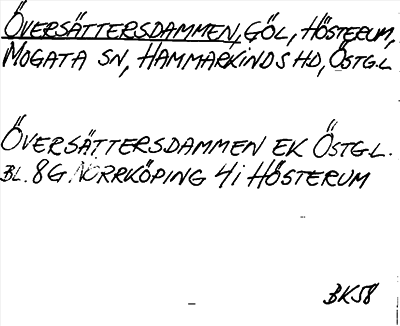 ÖVERSÄTTERSDAMMEN, GÖL, HÖSTERUM,
MOGATA SN, HAMMARKINDS HD, ÖSTGL
ÖVERSÄTTERSDAMMEN EK ÖSTGL.
BL. 8G. NORRKÖPING 4i HÖSTERUM
BK58